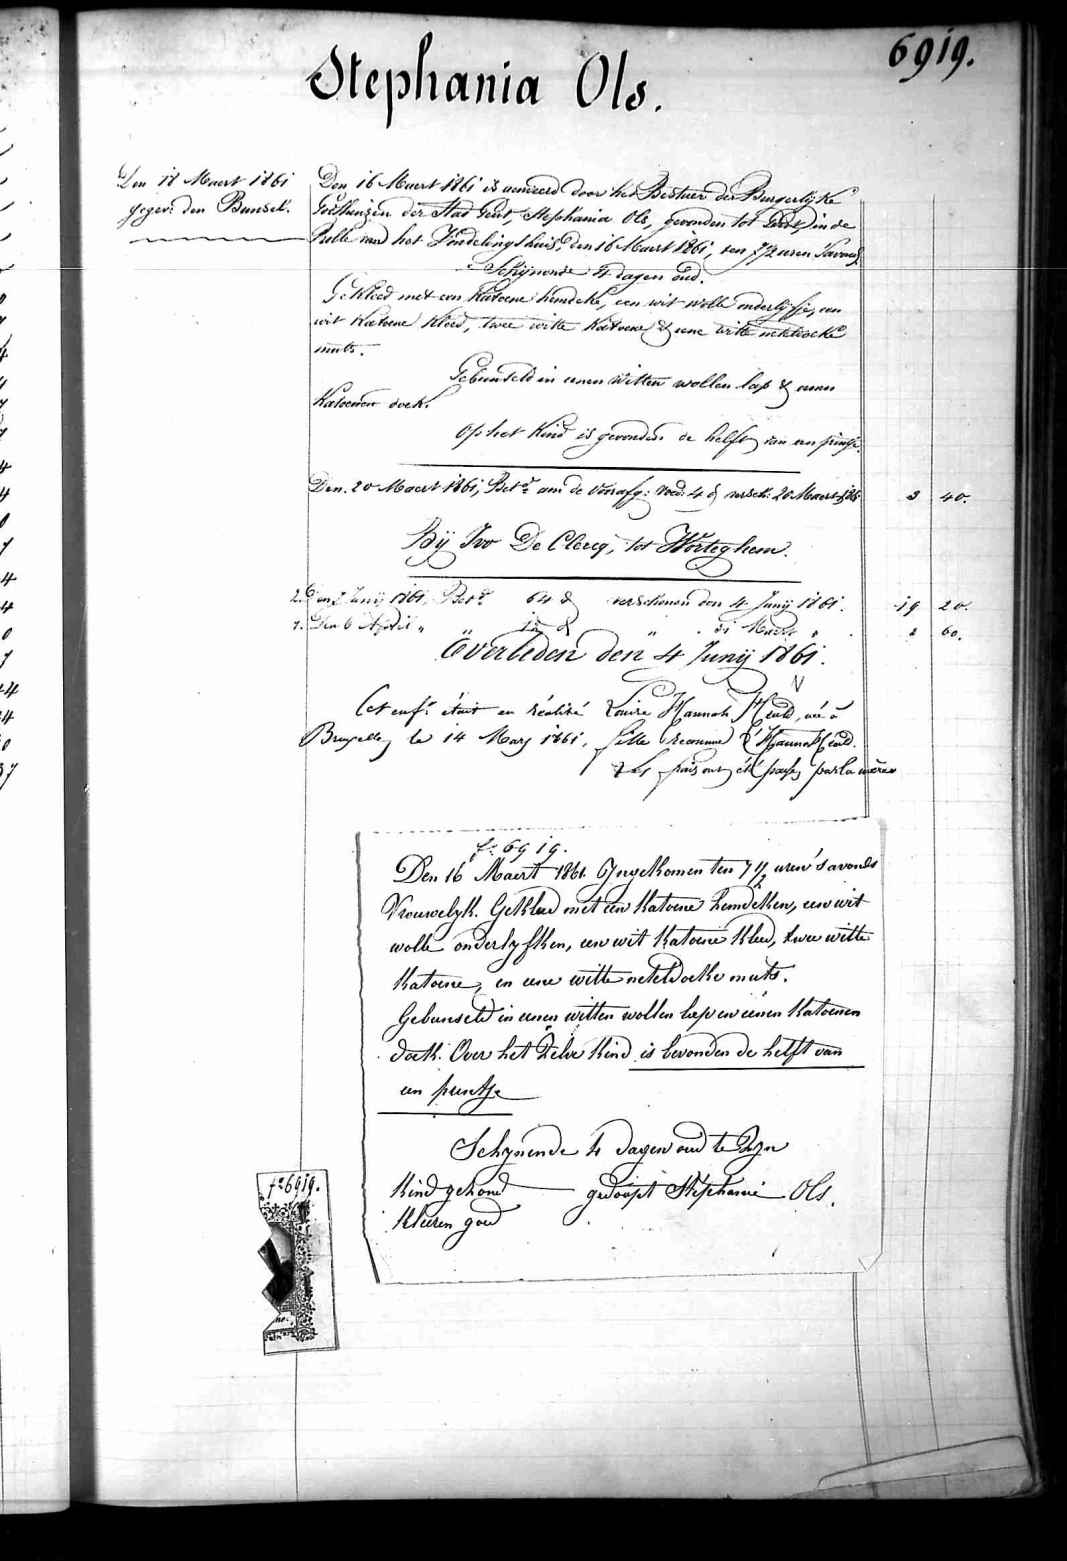 6919.
Stephania Ols.
Den 18 Maert 1861
gegev: den Bunsel.
Den 16 Maert 1861 is aenveerd door het Bestuer der Burgerlyke
Godshuizen der Stad Gent, Stephania Ols, gevonden tot Gent, in de
Rolle van het Vondelingshuis, den 16 Maert 1861, ten 7 1/2 uren 's avonds
Schijnende 4 dagen oud.
Gekleed met een Katoene hemdeke, een wit wolle onderlijfje, een
wit Katoene Kleed, twee witte Katoene & eene witte neteldoeke
muts.
Gebunseld in eenen witten wollen lap & eenen
Katoenen doek.
Op het Kind is gevonden de helft van een printje.
Den. 20 Maert 1861, Bet.d aen de Voorafg: voed: 4 d versch: 20 Maert 1861 3 40.
Bij Ivo De Clercq, tot Worteghem.
2. Den 7 Junij 1861, Bet.d 64 d verschenen den 4 Junij 1861. 19 20.
1. Den 6 April " " 12 d " 31 Maert " 60.
Overleden den 4 Junij 1861.
Cet enf.t était en réalité Louise Hannah Heald, née à
Bruxelles le 14 Mars 1861, fille reconnue d'Hannah Heald.
& les frais ont été payés par la mère
f.o 6919.
Den 16 Maert 1861. Ingekomen ten 7 1/2 uren 's avonds
Vrouwelyk. Gekleed met een Katoene hemdeken, een wit
wolle onderlyfken, een wit Katoene Kleed, twee witte
Katoene, en eene witte neteldoeke muts.
Gebunseld in eenen witten wollen lap en eenen Katoenen
doek. Over het Zelve Kind is bevonden de helft van
een printje
Schynende 4 dagen oud te Zyn
Kind gezond gedoopt Stéphanie Ols.
Kleeren goed
f.o 6919.